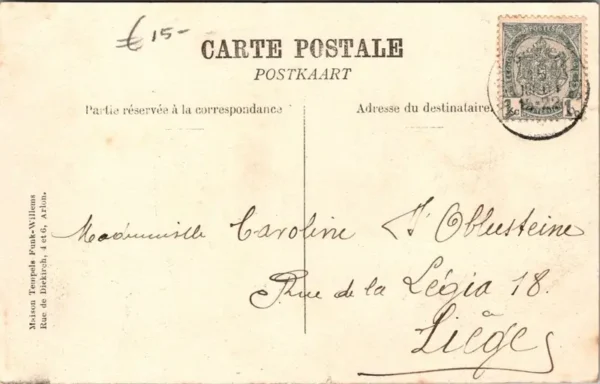 € 15-
CARTE POSTALE
POSTKAART
Partie réservée à la correspondance
Adresse du destinataire.
Mademoiselle Caroline
Rue de la Légia 18.
à
Liége
Maison Tempels Funk-Willems
Rue de Diekirch, 4 et 6, Arlon.